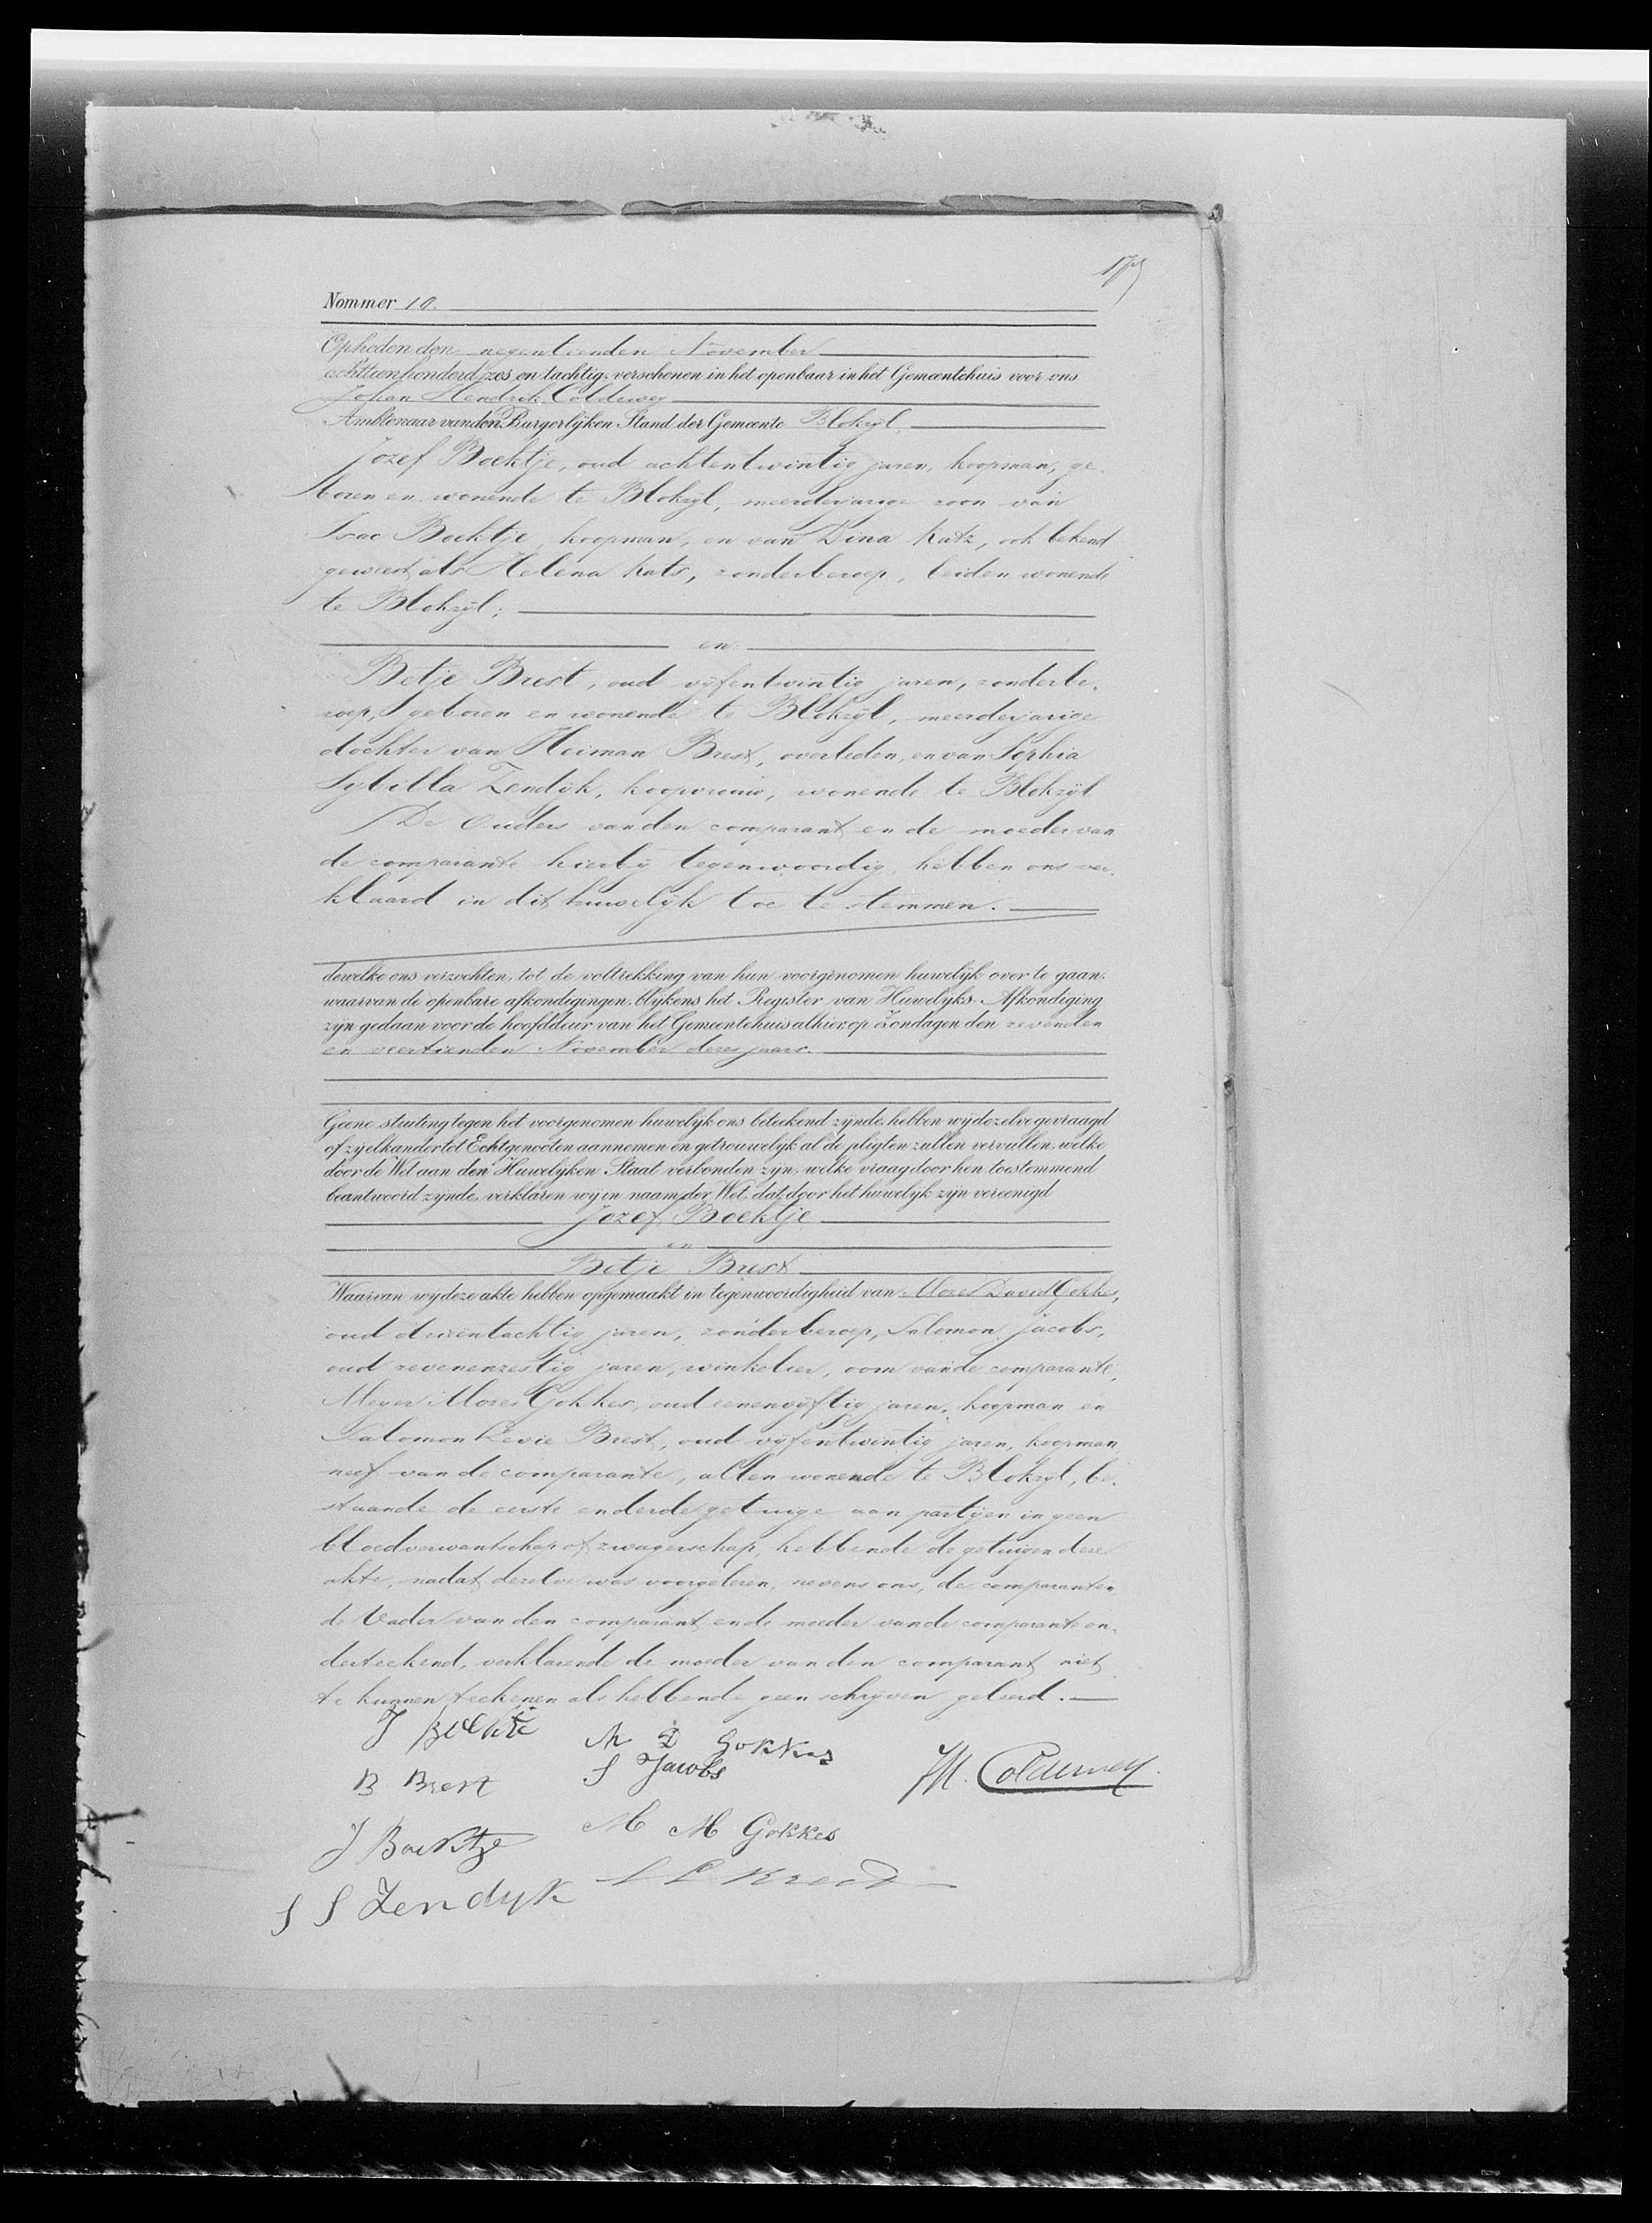 Nommer 10.
Op heden den negentienden November
achttienhonderd zes en tachtig, verschenen in het openbaar in het Gemeentehuis voor ons
Johan Hendrik Coldewey
Ambtenaar van den Burgerlijken Stand der Gemeente Blokzyl
Jozef Boektje, oud achtentwintig jaren, koopman, ge-
boren en wonende te Blokzyl, meerderjarige zoon van
Isac Boektje, koopman, en van Dina Katz, ook bekend
geweest als Helena Kats, zonder beroep, beiden wonende
te Blokzyl;
en
Betje Brest, oud vyfentwintig jaren, zonder be-
roep, geboren en wonende te Blokzyl, meerderjarige
dochter van Heiman Brest, overleden, en van Sophia
Sybilla Zendyk, koopvrouw, wonende te Blokzyl
De Ouders van den comparant en de moeder van
de comparante hierby tegenwoordig, hebben ons ver-
klaard in dit huwelyk toe te stemmen.
dewelke ons verzochten, tot de voltrekking van hun voorgenomen huwelijk over te gaan,
waarvan de openbare afkondigingen, blykens het Register van Huwelijks-Afkondiging
zijn gedaan voor de hoofddeur van het Gemeentehuis alhier, op Zondagen den zevenden
en veertienden November dezes jaars.
Geene stuiting tegen het voorgenomen huwelijk ons beteekend zijnde, hebben wij dezelve gevraagd
of zij elkander tot Echtgenooten aannemen en getrouwelijk al de pligten zullen vervullen, welke
door de Wet aan den Huwelijken Staat verbonden zijn, welke vraag door hen toestemmend
beantwoord zijnde, verklaren wij in naam der Wet, dat door het huwelijk zijn vereenigd
Jozef Boektje
en
Betje Brest
Waarvan wij deze akte hebben opgemaakt in tegenwoordigheid van Mozes David Gokkes,
oud drieëntachtig jaren, zonder beroep, Salomon Jacobs,
oud zevenenzestig jaren, winkelier, oom van de comparante,
Meyer Mozes Gokkes, oud eenenvyftig jaren, koopman en
Salomon Levie Brest, oud vyfentwintig jaren, koopman
neef van de comparante, allen wonende te Blokzyl, be-
staande de eerste en derde getuige aan partyen in geen
bloedverwantschap of zwagerschap, hebbende de getuigen deze
akte, nadat dezelve was voorgelezen, nevens ons, de comparanten,
de Vader van den comparant en de moeder van de comparante on-
derteekend, verklarende de moeder van den comparant niet
te kunnen teekenen als hebbende geen schryven geleerd.
J Boektje
M D Gokkes
S Jacobs
JH. Coldewey
B Brest
J Boektje
M M Gokkes
S L Brest
S S Zendyk